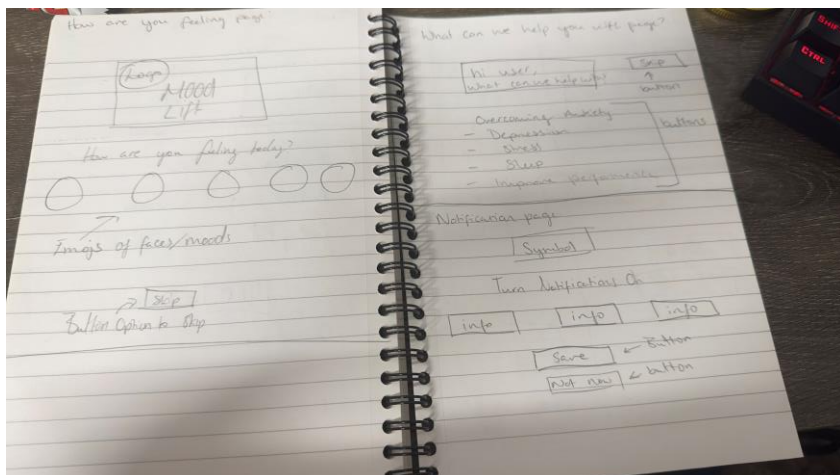 How are you feeling page?
Logo
Mood
Lift
How are you feeling today?
Emojs of faces/moods
Skip
Button Option to Skip
What can we help you with page?
Hi user,
What can we help with?
Skip
button
Overcoming Anxiety
- Depression
- Stress
- Sleep
- Improve performance
buttons
Notification page
Symbol
Turn Notifications On
info
info
info
Save
Button
Not now
button
CTRL